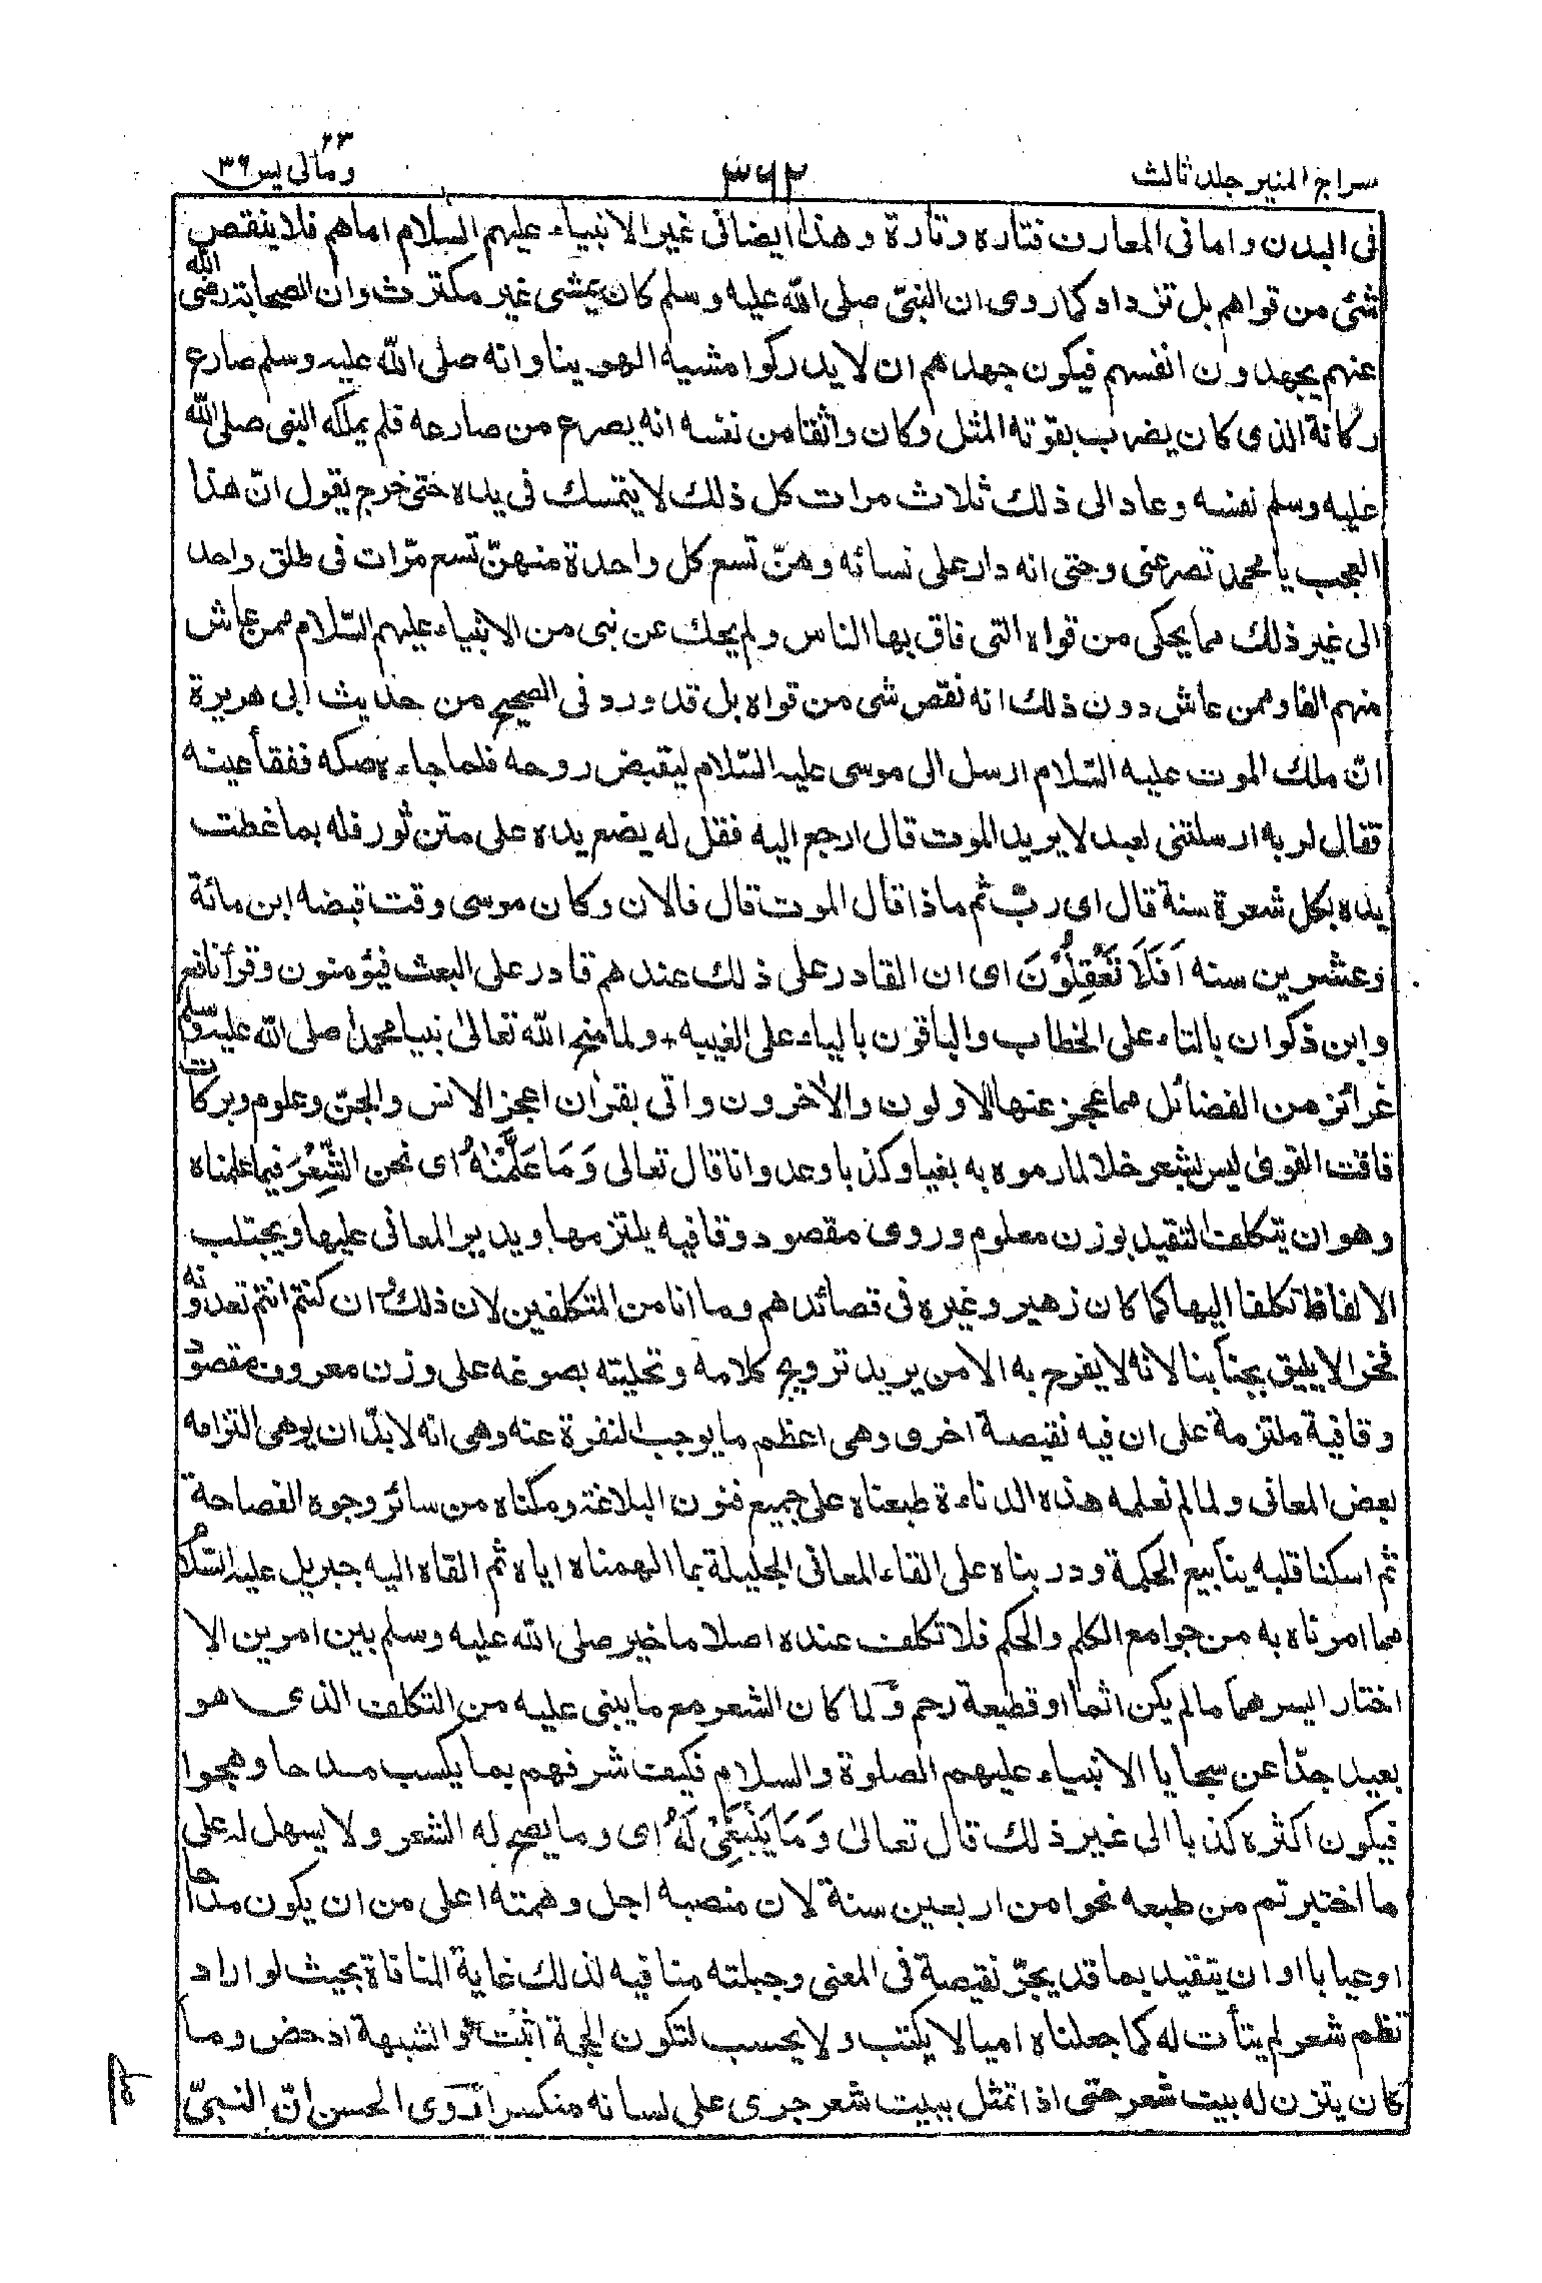 سراج المنير جلد ثالث
٣٦٢
٢٣
ومالى يس ٣٦
فى البدن واما فى المعارف فتاره وتارة وهذا ايضا فى غير الانبياء عليهم السلام اما هم فلا ينقص
شئ من قواهم بل تزداد كما روى ان النبىّ صلى الله عليه وسلم كان يمشى غير مكترث وان الصحابة رضى الله
عنهم يجهدون انفسهم فيكون جهدهم ان لا يدركوا مشيه الهوينا وانه صلى الله عليه وسلم صارع
ركانة الذى كان يضرب بقوته المثل وكان واثقا من نفسه انه يصرع من صارعه فلم يملكه النبى صلى الله
عليه وسلم نفسه وعاد الى ذلك ثلاث مرات كل ذلك لا يتمسك فى يده حتى خرج يقول انّ هذا
العجب يا محمد تصرعنى وحتى انه دار على نسائه وهنّ تسع كل واحدة منهنّ تسع مرّات فى طلق واحد
الى غير ذلك مما يحكى من قواه التى فاق بها الناس ولم يحك عن نبى من الانبياء عليهم السّلام ممن عاش
منهم الفا وممن عاش دون ذلك انه نقص شى من قواه بل قد ورد فى الصحيح من حديث ابى هريرة
انّ ملك الموت عليه السّلام ارسل الى موسى عليه السّلام ليقبض روحه فلما جاءه صكه ففقأ عينه
فقال لربه ارسلتنى لعبد لا يريد الموت قال ارجع اليه فقل له يضع يده على متن ثور فله بما غطت
يده بكل شعرة سنة قال اى ربّ ثم ماذا قال الموت قال فالان وكان موسى وقت قبضه ابن مائة
وعشرين سنه اَفَلَا تَعْقِلُوْنَ اى ان القادر على ذلك عندهم قادر على البعث فيؤمنون وقرأ نافع
وابن ذكوان بالتاء على الخطاب والباقون بالياء على الغيبه + ولما منح الله تعالىٰ نبيا محمدا صلى الله عليه وسلم
غرائز من الفضائل مما عجز عنها الاولون والاٰخرون واتى بقراٰن اعجز الانس والجنّ وعلوم وبركات
فاقت القوىٰ ليس بشعر خلالما رموه به بغيا وكذبا وعدوانا قال تعالى وَمَا عَلَّمْنٰهُ اى نحن الشِّعْرَ فيما علمناه
وهو ان يتكلف لتقيد بوزن معلوم وروى مقصود وقافيه يلتزمها ويدير المعانى عليها ويجتلب
الالفاظ تكلفا اليها كما كان زهير وغيره فى قصائدهم وما انا من المتكلفين لان ذلك وان كنتم انتم تعدونه
فخرا لا يليق بجنابنا لانه لا يفرح به الا من يريد ترويج كلامه وتحليته بصوغه على وزن معروف مقصود
وقافية ملتزمة على ان فيه نقيصة اخرى وهى اعظم ما يوجب النفرة عنه وهى انه لا بدّ ان يوهى التزامه
بعض المعانى ولما لم نعلمه هذه الدناءة طبعناه على جميع فنون البلاغة ومكناه من سائر وجوه الفصاحة
ثم اسكنا قلبه ينابيع الحكمة ودربناه على القاء المعانى الجليلة بما الهمناه اياه ثم القاه اليه جبريل عليه السّلام
مما امرناه به من جوامع الكلم والحكم فلا تكلف عنده اصلا ما خير صلى الله عليه وسلم بين امرين الا
اختار ايسرهما ما لم يكن اثما او قطيعة رحم ولما كان الشعر مع ما يبنى عليه من التكلف الذى هو
بعيد جدّا عن سجايا الانبياء عليهم الصلوة والسلام فكيف شرفهم بما يكسب مدحا وهجوا
فيكون اكثره كذبا الى غير ذلك قال تعالىٰ وَمَا يَنْۢبَغِىْ لَهٗ اى وما يصح له الشعر ولا يسهل له على
ما اختبرتم من طبعه نحوا من اربعين سنة لان منصبه اجل وهمته اعلى من ان يكون مداحا
او عيابا او ان يتقيد بما قد يجرّ نقيصة فى المعنى وجبلته منافيه لذلك غاية المنافاة بحيث لو اراد
نظم شعر لم يتأت له كما جعلناه اميا لا يكتب ولا يحسب لتكون الحجة اثبت والشبهة ادحض وما
كان يتزن له بيت شعر حتى اذا تمثل ببيت شعر جرى على لسانه منكسرا روى الحسن انّ النبىّ